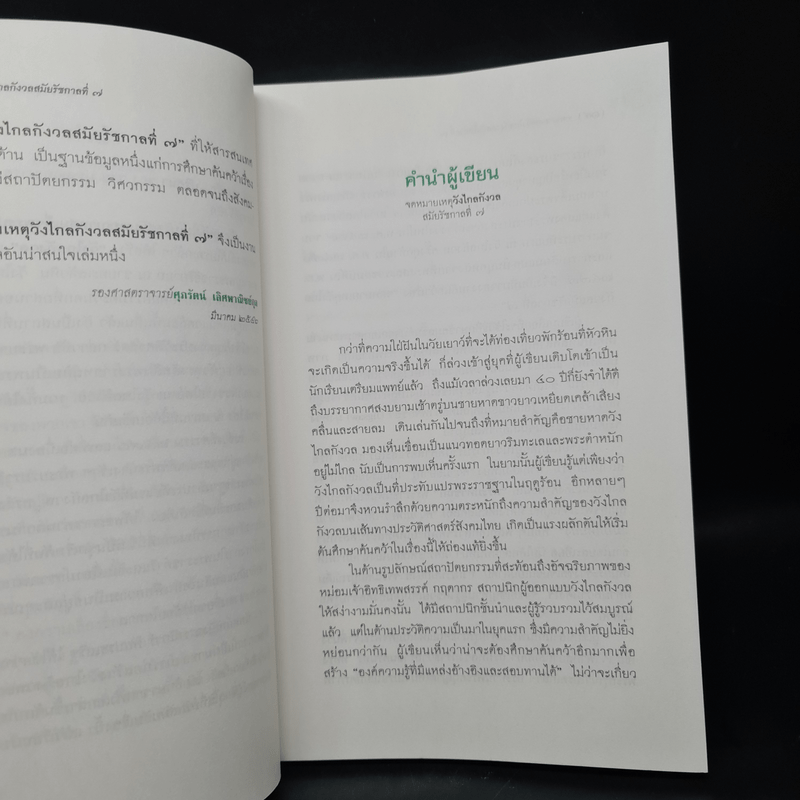 ไกลกังวลสมัยรัชกาลที่ ๗
วังไกลกังวลสมัยรัชกาลที่ ๗” ที่ให้สารสนเทศ
ด้าน เป็นฐานข้อมูลหนึ่งแก่การศึกษาค้นคว้าเรื่อง
สถาปัตยกรรม วิศวกรรม ตลอดจนถึงสังคม-
เหตุวังไกลกังวลสมัยรัชกาลที่ ๗” จึงเป็นงาน
อันน่าสนใจเล่มหนึ่ง
รองศาสตราจารย์ศุภรัตน์ เลิศพาณิชย์กุล
มีนาคม
คำนำผู้เขียน
จดหมายเหตุวังไกลกังวล
สมัยรัชกาลที่ ๗
กว่าที่ความใฝ่ฝันในวัยเยาว์ที่จะได้ท่องเที่ยวพักร้อนที่หัวหิน
จะเกิดเป็นความจริงขึ้นได้ ก็ล่วงเข้าสู่ยุคที่ผู้เขียนเติบโตเข้าเป็น
นักเรียนเตรียมแพทย์แล้ว ถึงแม้เวลาล่วงเลยมา ๔๐ ปีก็ยังจำได้ดี
ถึงบรรยากาศสงบยามเช้าตรู่บนชายหาดขาวยาวเหยียดเคล้าเสียง
คลื่นและสายลม เดินเล่นกันไปจนถึงที่หมายสำคัญคือชายหาดวัง
ไกลกังวล มองเห็นเขื่อนเป็นแนวทอดยาวริมทะเลและพระตำหนัก
อยู่ไม่ไกล นับเป็นการพบเห็นครั้งแรก ในยามนั้นผู้เขียนรู้แต่เพียงว่า
วังไกลกังวลเป็นที่ประทับแปรพระราชฐานในฤดูร้อน อีกหลายๆ
ปีต่อมาจึงหวนรำลึกด้วยความตระหนักถึงความสำคัญของวังไกล
กังวลบนเส้นทางประวัติศาสตร์สังคมไทย เกิดเป็นแรงผลักดันให้เริ่ม
ต้นศึกษาค้นคว้าในเรื่องนี้ให้ถ่องแท้ยิ่งขึ้น
ในด้านรูปลักษณ์สถาปัตยกรรมที่สะท้อนถึงอัจฉริยภาพของ
หม่อมเจ้าอิทธิเทพสรรค์ กฤดากร สถาปนิกผู้ออกแบบวังไกลกังวล
ให้สง่างามมั่นคงนั้น ได้มีสถาปนิกชั้นนำและผู้รู้รวบรวมไว้สมบูรณ์
แล้ว แต่ในด้านประวัติความเป็นมาในยุคแรก ซึ่งมีความสำคัญไม่ยิ่ง
หย่อนกว่ากัน ผู้เขียนเห็นว่าน่าจะต้องศึกษาค้นคว้าอีกมากเพื่อ
สร้าง “องค์ความรู้ที่มีแหล่งอ้างอิงและสอบทานได้” ไม่ว่าจะเกี่ยว